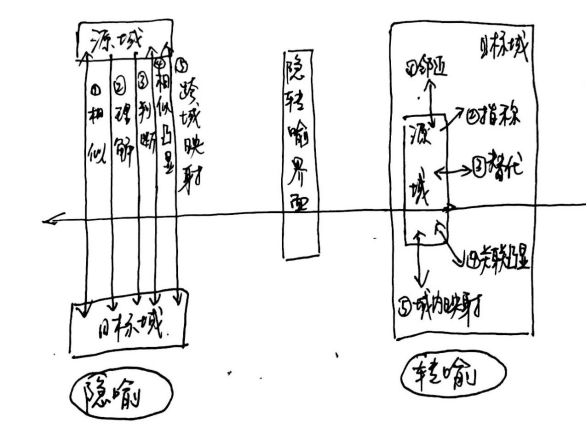 源域
①相似
②理解
③判断
④相似凸显
⑤跨域映射
目标域
隐喻
隐转喻界面
目标域
①邻近
源域
②指称
③替代
④关联凸显
⑤域内映射
转喻